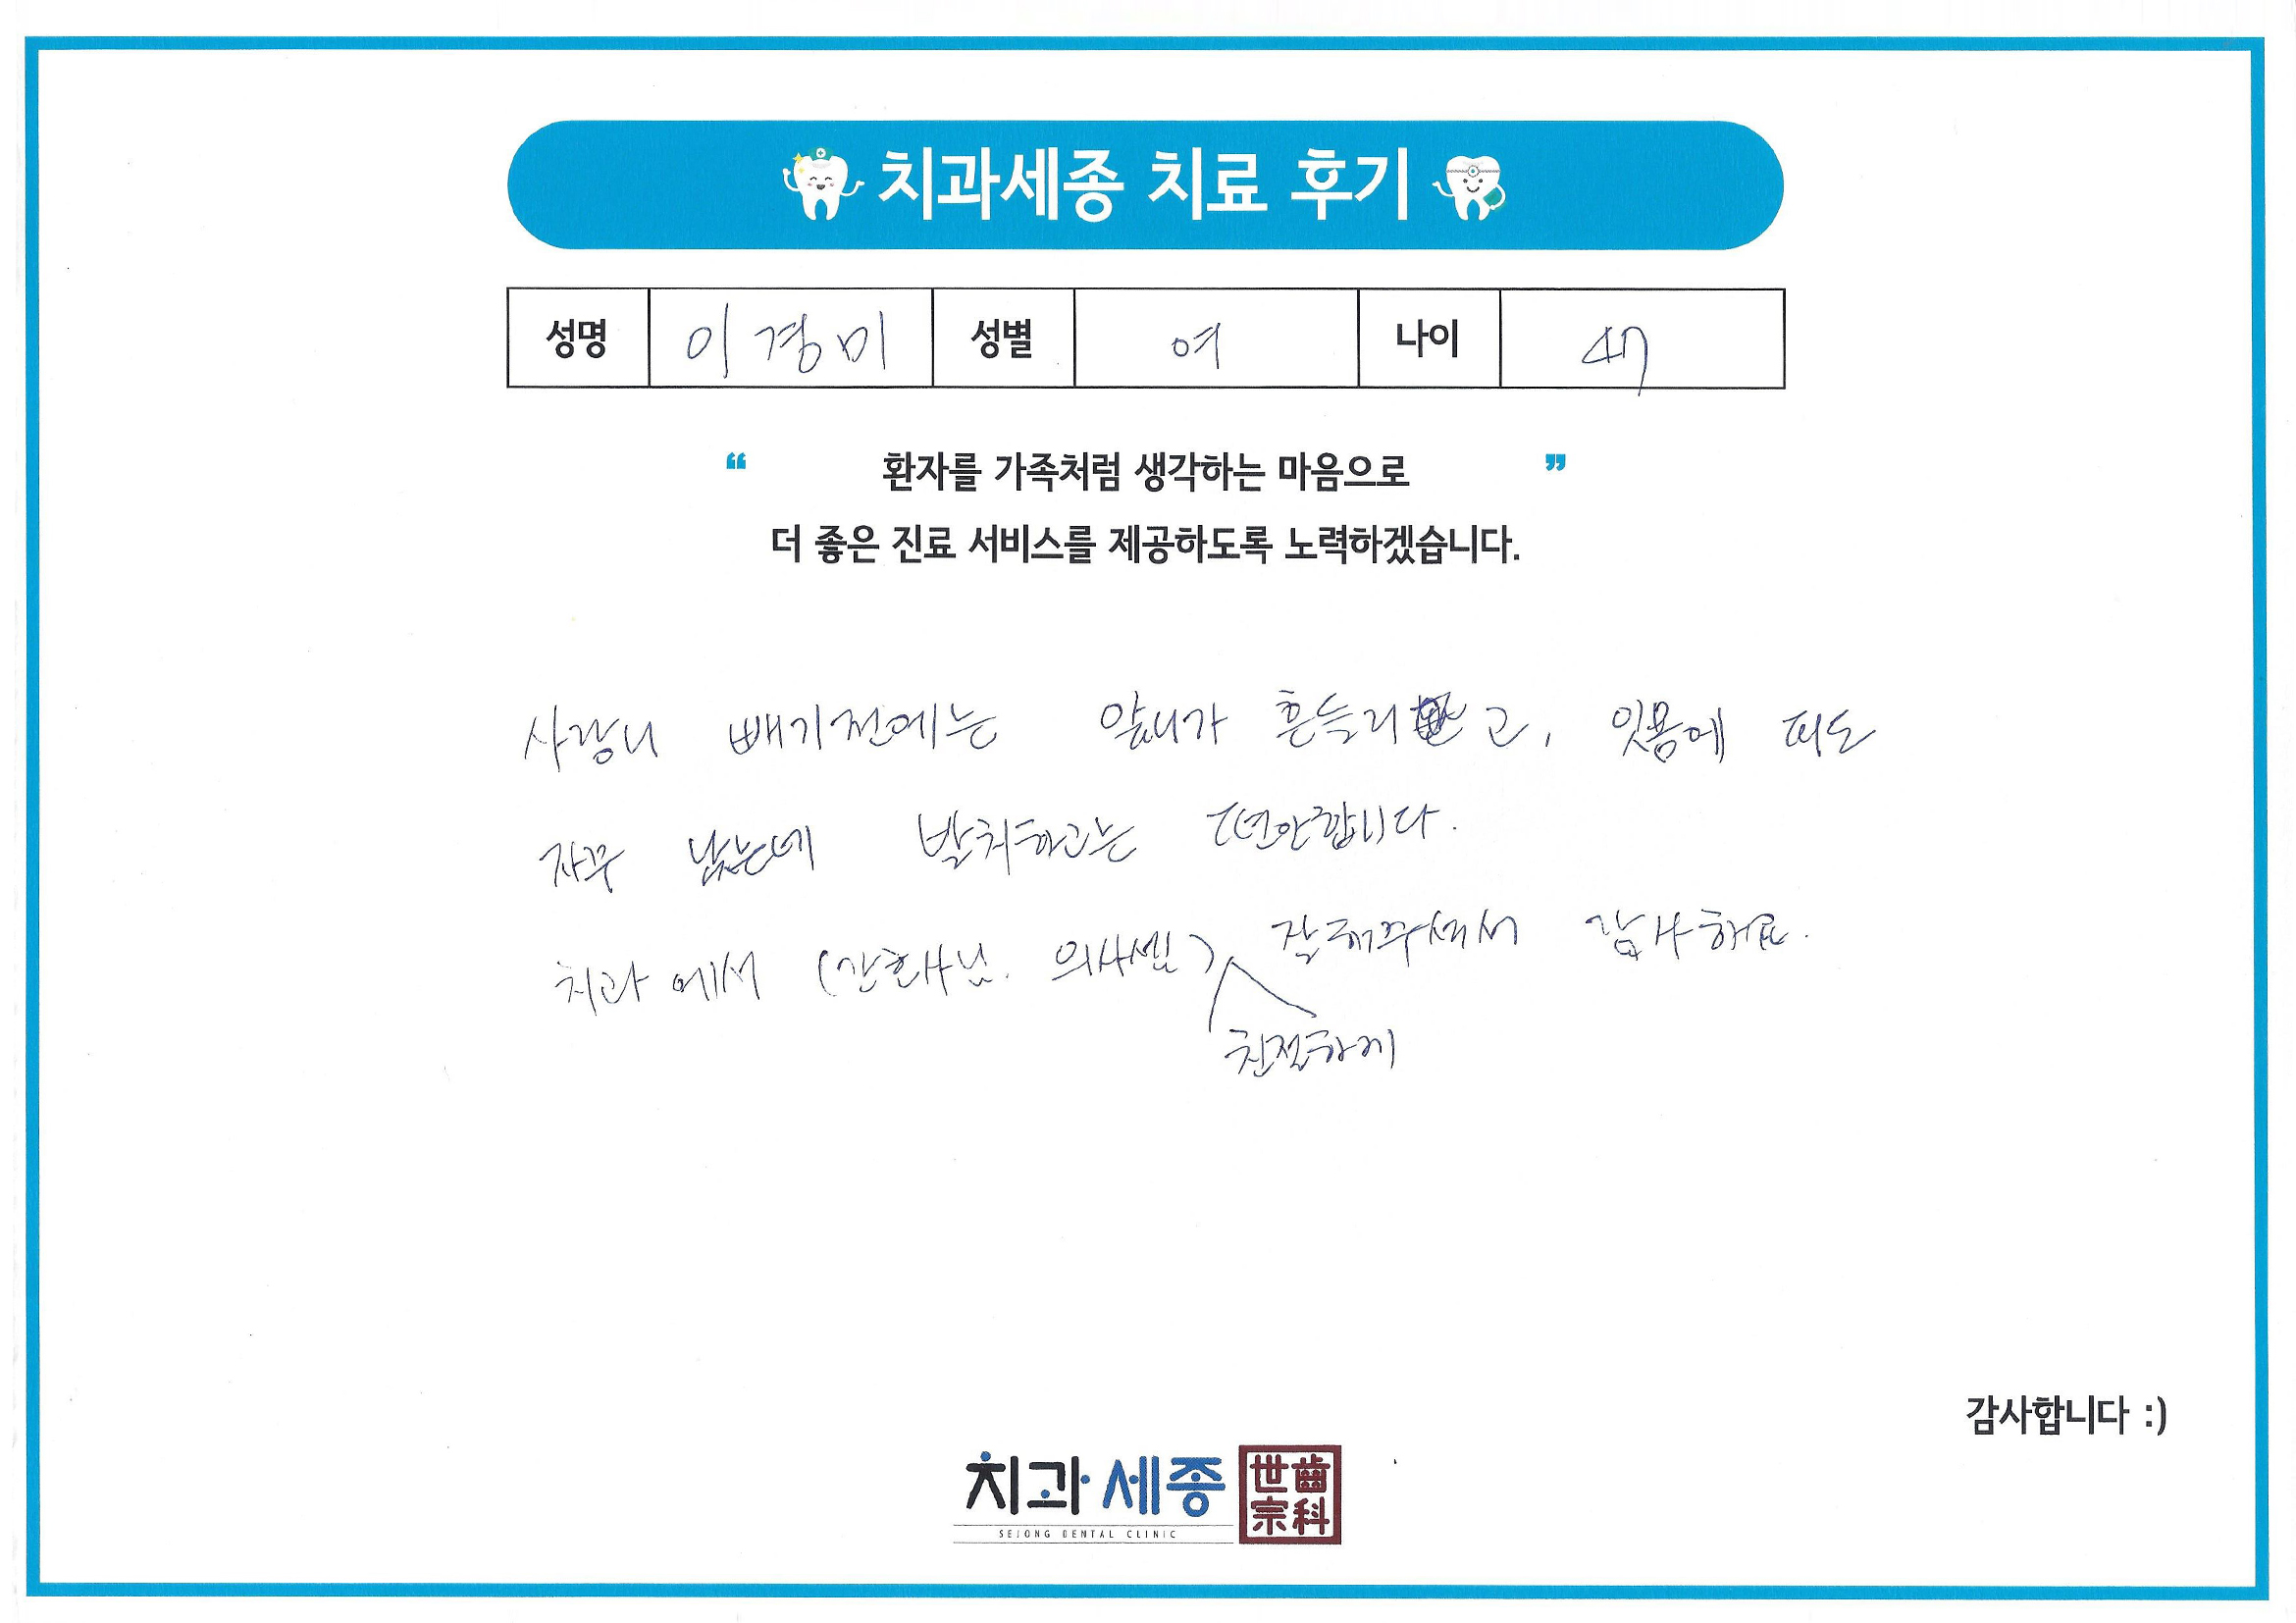 치과세종 치료 후기
성명 이경미 성별 여 나이 47
“ 환자를 가족처럼 생각하는 마음으로 ”
더 좋은 진료 서비스를 제공하도록 노력하겠습니다.
사랑니 빼기전에는 앞니가 흔들리고, 잇몸에 피도
자꾸 났는데 발치하고는 편안합니다.
치과에서 (간호사님. 의사쌤) 잘해주셔서 감사해요.
친절하게
감사합니다 :)
치과세종 世齒
SEJONG DENTAL CLINIC 宗科